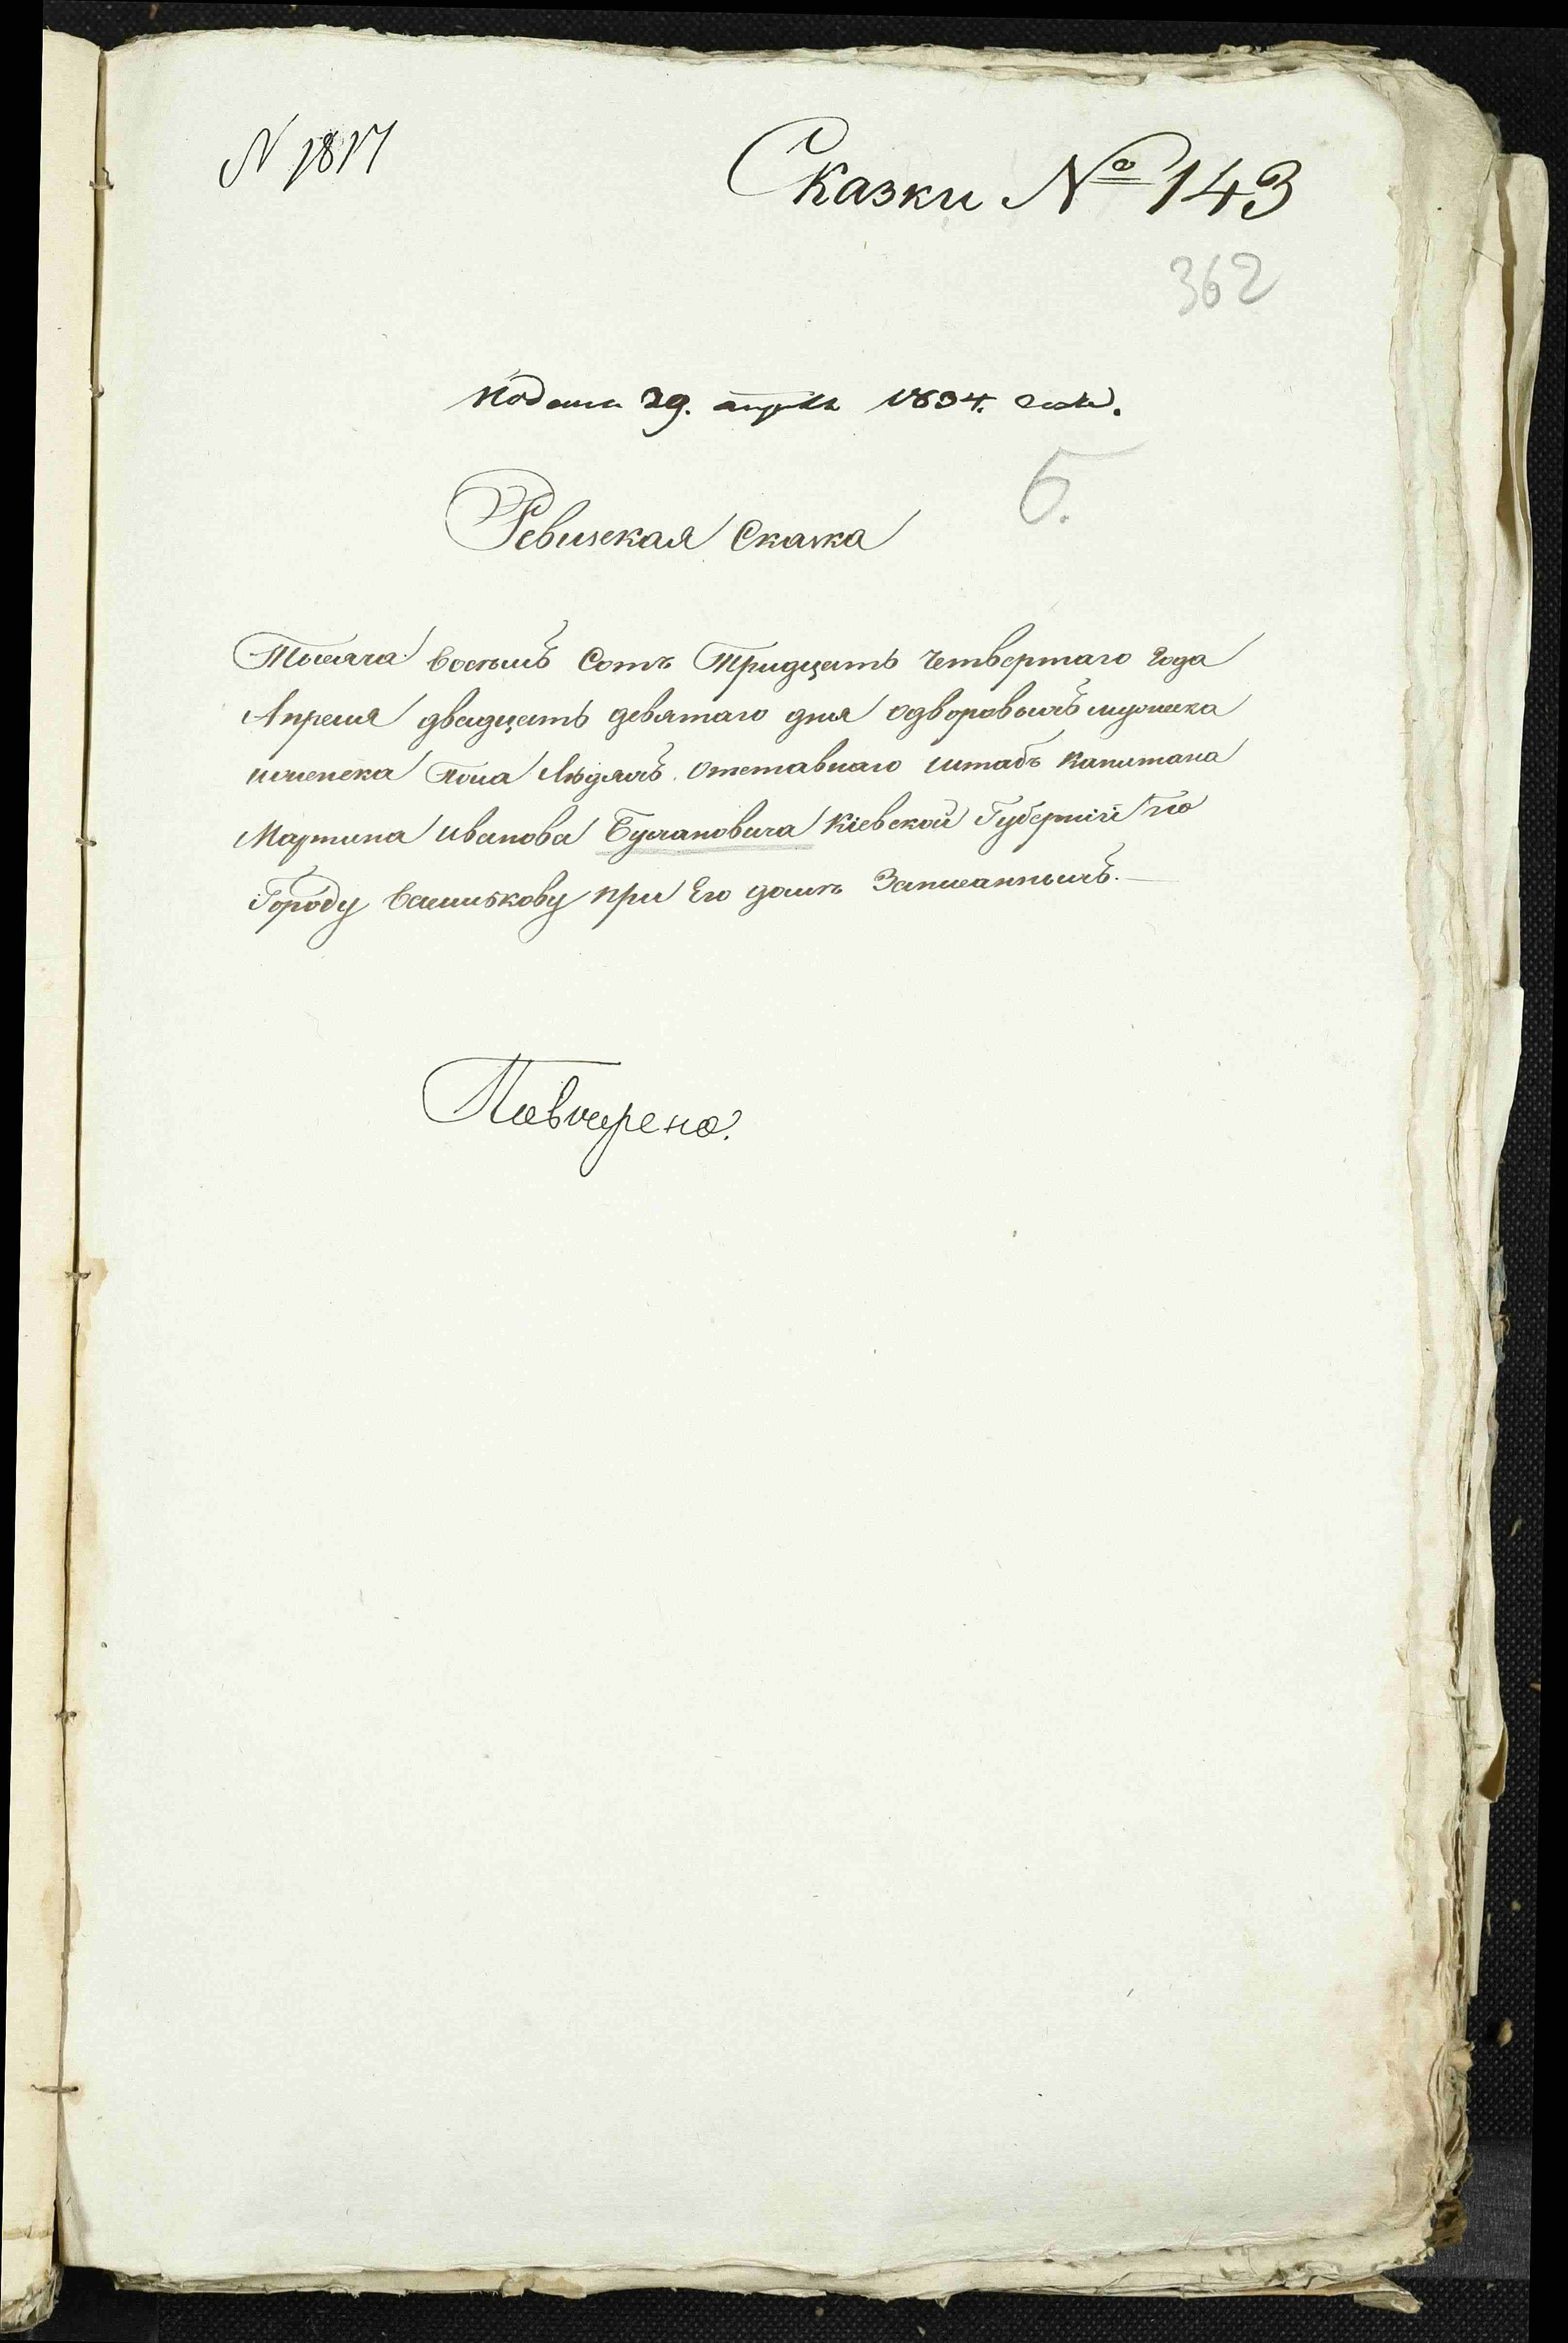 N 1817
Сказки № 143
362
подана 29. апреля 1834. года.
Б.
Ревизская Сказка
Тысяча восемь Сотъ Тридцать четвертаго года
Апреля двадцать девятаго дня одворовыхъ мужеска
иженска пола Людяхъ. Отставнаго штабъ Капитана
Мартина Иванова Кіевской Губерніи по
Городу Василькову при Его доме Записанныхъ.